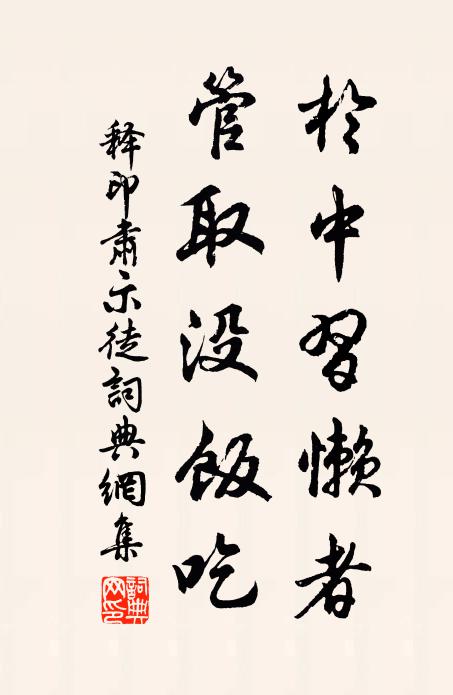 於中習懶者
管取没飯吃
释印肅示徒詞典網集
詞典網印